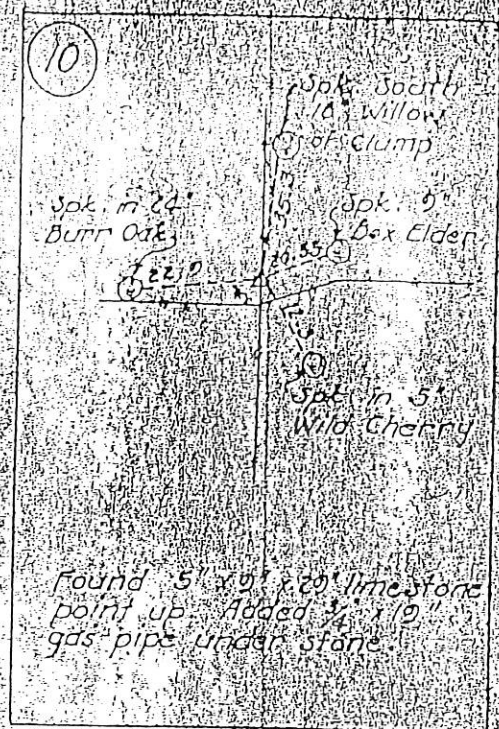 10
Spk. South
10" Willow
of Clump
35.3
Spk. in 24"
Burr Oak
22.9
Spk. 9"
Box Elder
Spk. in 5"
Wild Cherry
Found 5" x 9" x 29" limestone
point up. Added 3/4" x 19"
gas pipe under stone.